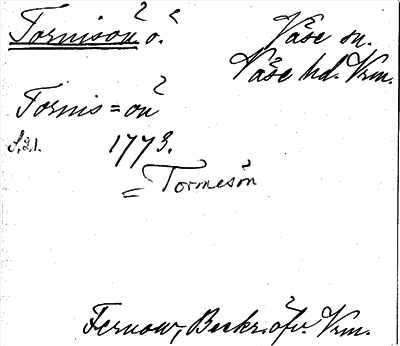 Tornisön. ö. Väse sn.
Väse hd. Vrm.
Tornis=ön
S.21. 1773.
= Tormesön
Fernow, Beskr. öfv. Vrm.